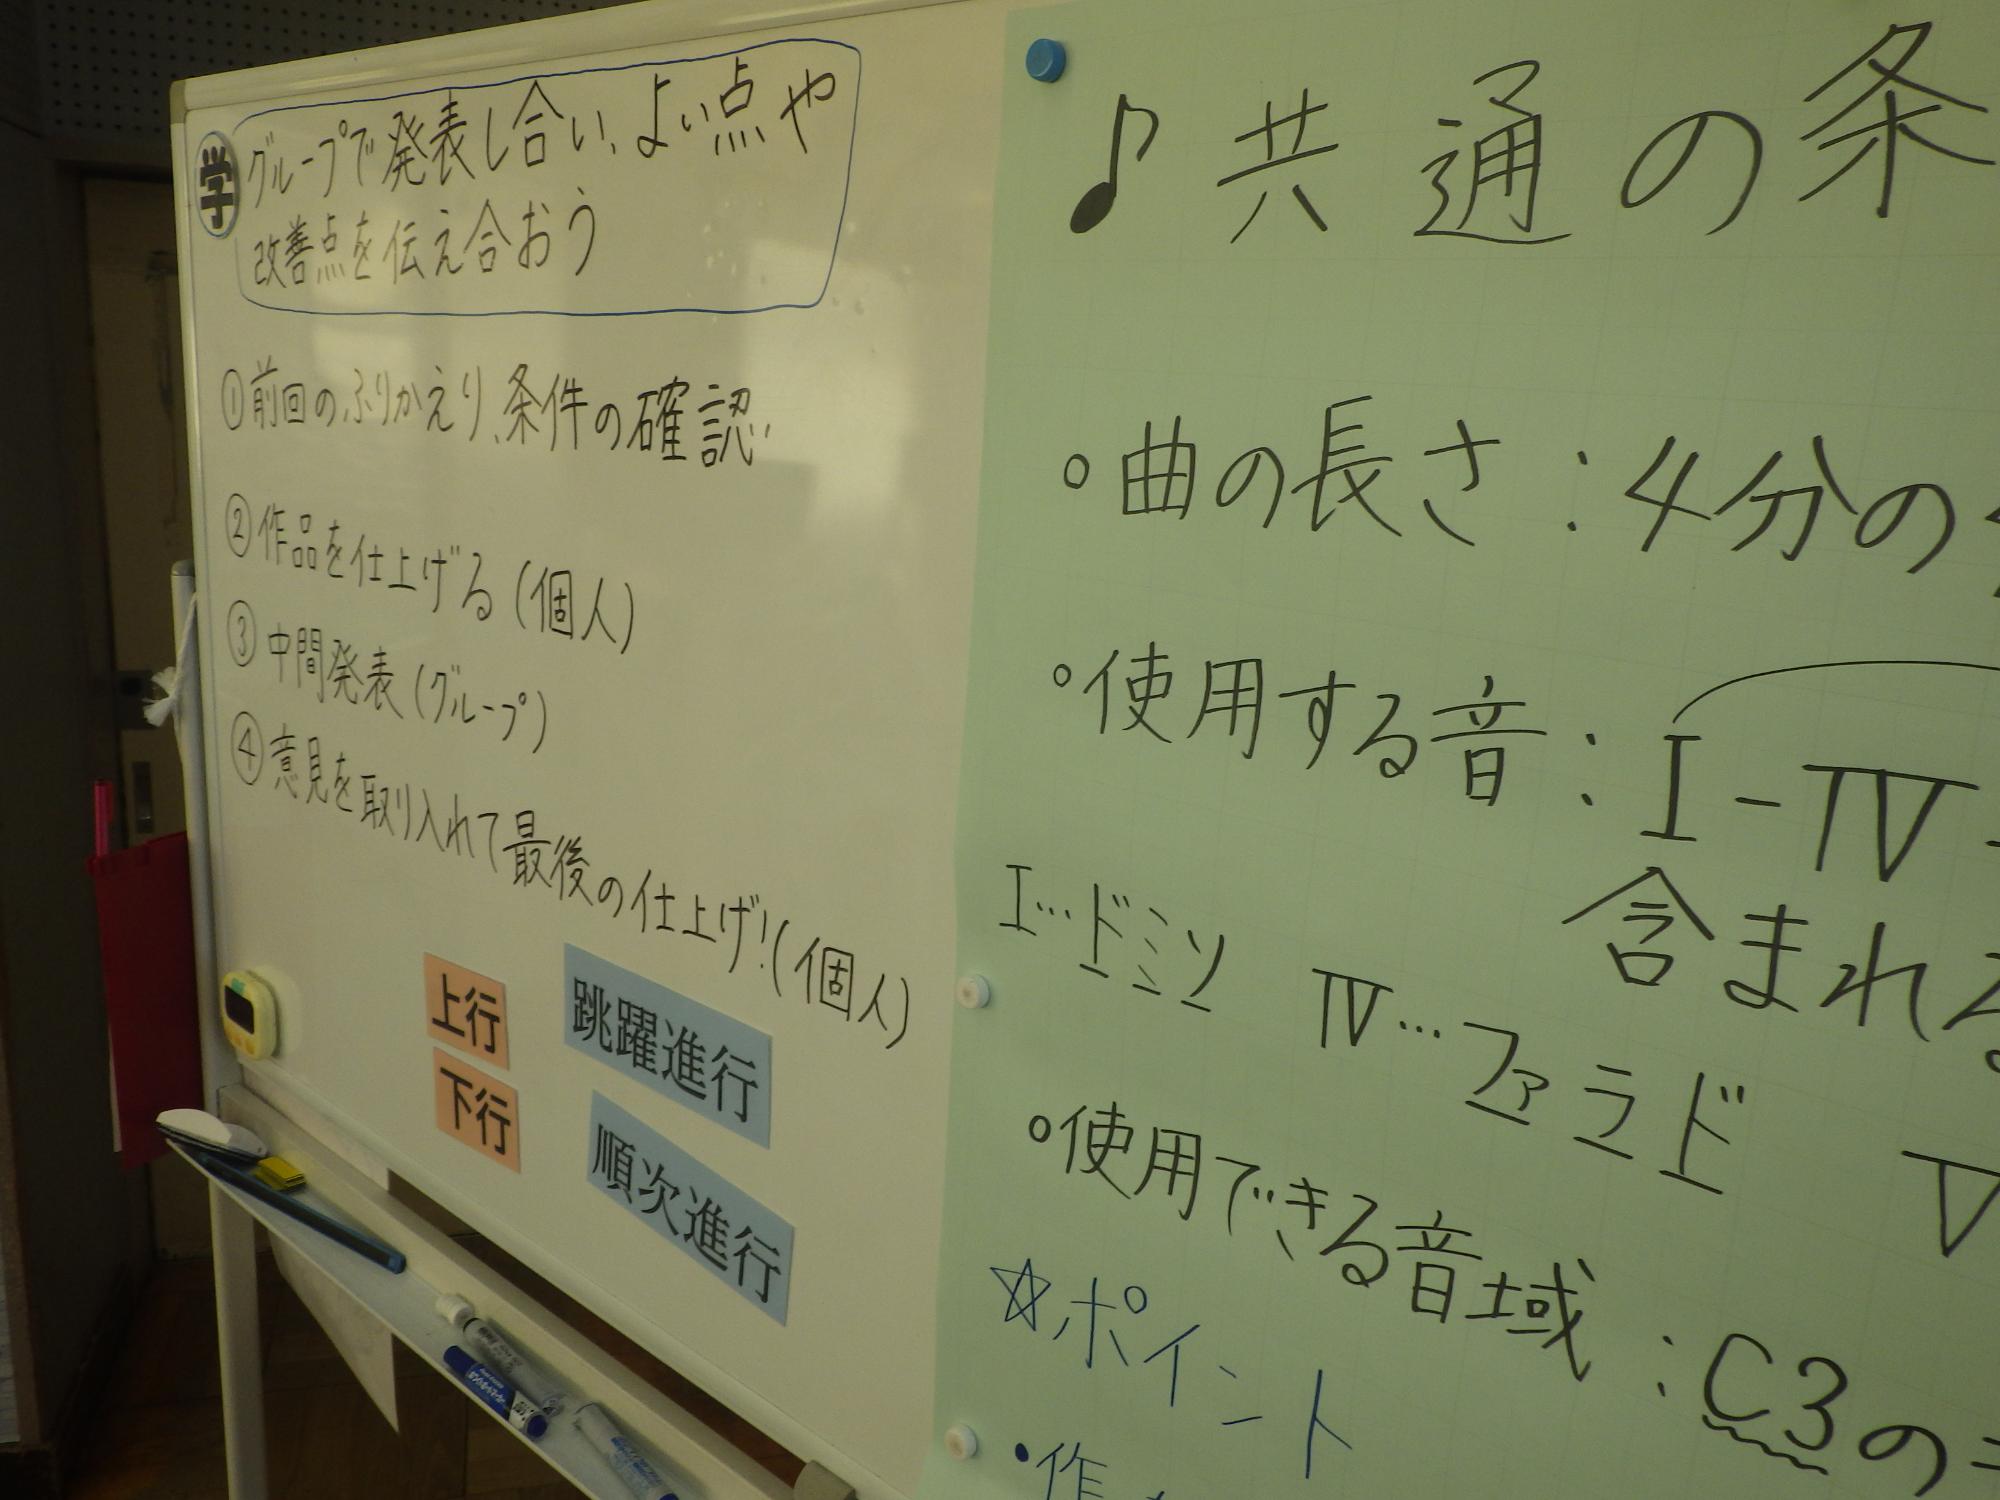 学
グループで発表し合い、よい点や
改善点を伝え合おう
①前回のふりかえり、条件の確認
②作品を仕上げる(個人)
③中間発表(グループ)
④意見を取り入れて最後の仕上げ!(個人)
上行
下行
跳躍進行
順次進行
♪共通の条
○曲の長さ:4分の
○使用する音:I-IV
含まれ
I…ドミソ IV…ファラド V
○使用できる音域:C3の
☆ポイント
・作